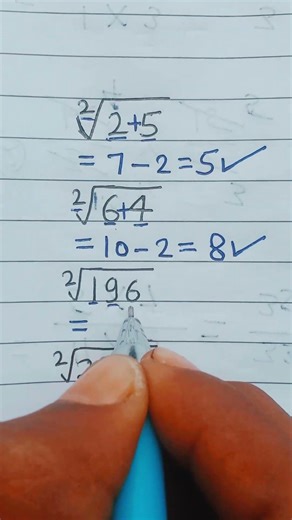 ²√2+5
= 7 - 2 = 5 ✓
²√6+4
= 10 - 2 = 8 ✓
²√196
=